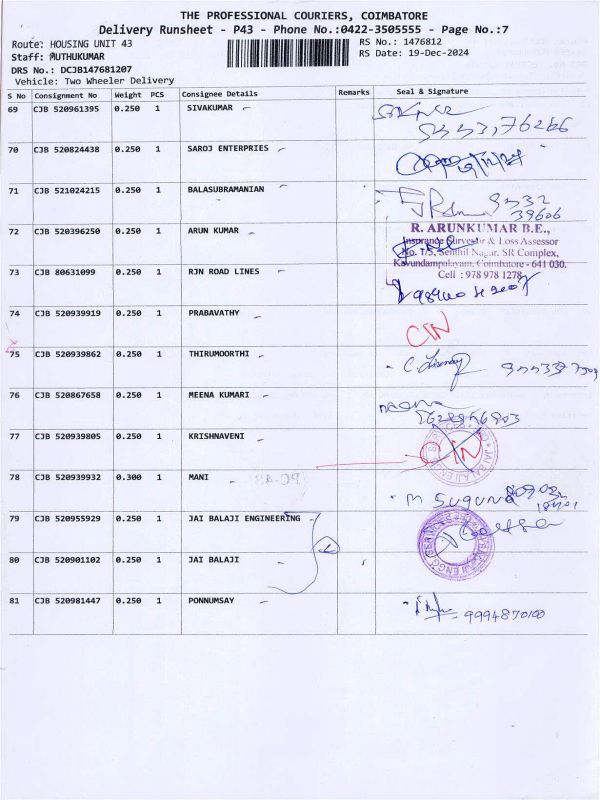 THE PROFESSIONAL COURIERS, COIMBATORE
Delivery Runsheet - P43 - Phone No.:0422-3505555 - Page No.:7
Route: HOUSING UNIT 43
RS No.: 1476812
Staff: MUTHUKUMAR
RS Date: 19-Dec-2024
DRS No.: DCJB147681207
Vehicle: Two Wheeler Delivery
S No Consignment No Weight PCS Consignee Details Remarks Seal & Signature
69 CJB 520961395 0.250 1 SIVAKUMAR
70 CJB 520824438 0.250 1 SAROJ ENTERPRIES
71 CJB 521024215 0.250 1 BALASUBRAMANIAN
39606
72 CJB 520396250 0.250 1 ARUN KUMAR
R. ARUNKUMAR B.E.,
Insurance Surveyor & Loss Assessor
No. 175, Senthil Nagar, SR Complex,
Kavundampalayam, Coimbatore - 641 030.
Cell : 978 978 1278
73 CJB 80631099 0.250 1 RJN ROAD LINES
74 CJB 520939919 0.250 1 PRABAVATHY
CIN
75 CJB 520939862 0.250 1 THIRUMOORTHI
76 CJB 520867658 0.250 1 MEENA KUMARI
77 CJB 520939805 0.250 1 KRISHNAVENI
CIN
78 CJB 520939932 0.300 1 MANI
M Suguna
79 CJB 520955929 0.250 1 JAI BALAJI ENGINEERING
80 CJB 520901102 0.250 1 JAI BALAJI
81 CJB 520981447 0.250 1 PONNUMSAY
9994870100